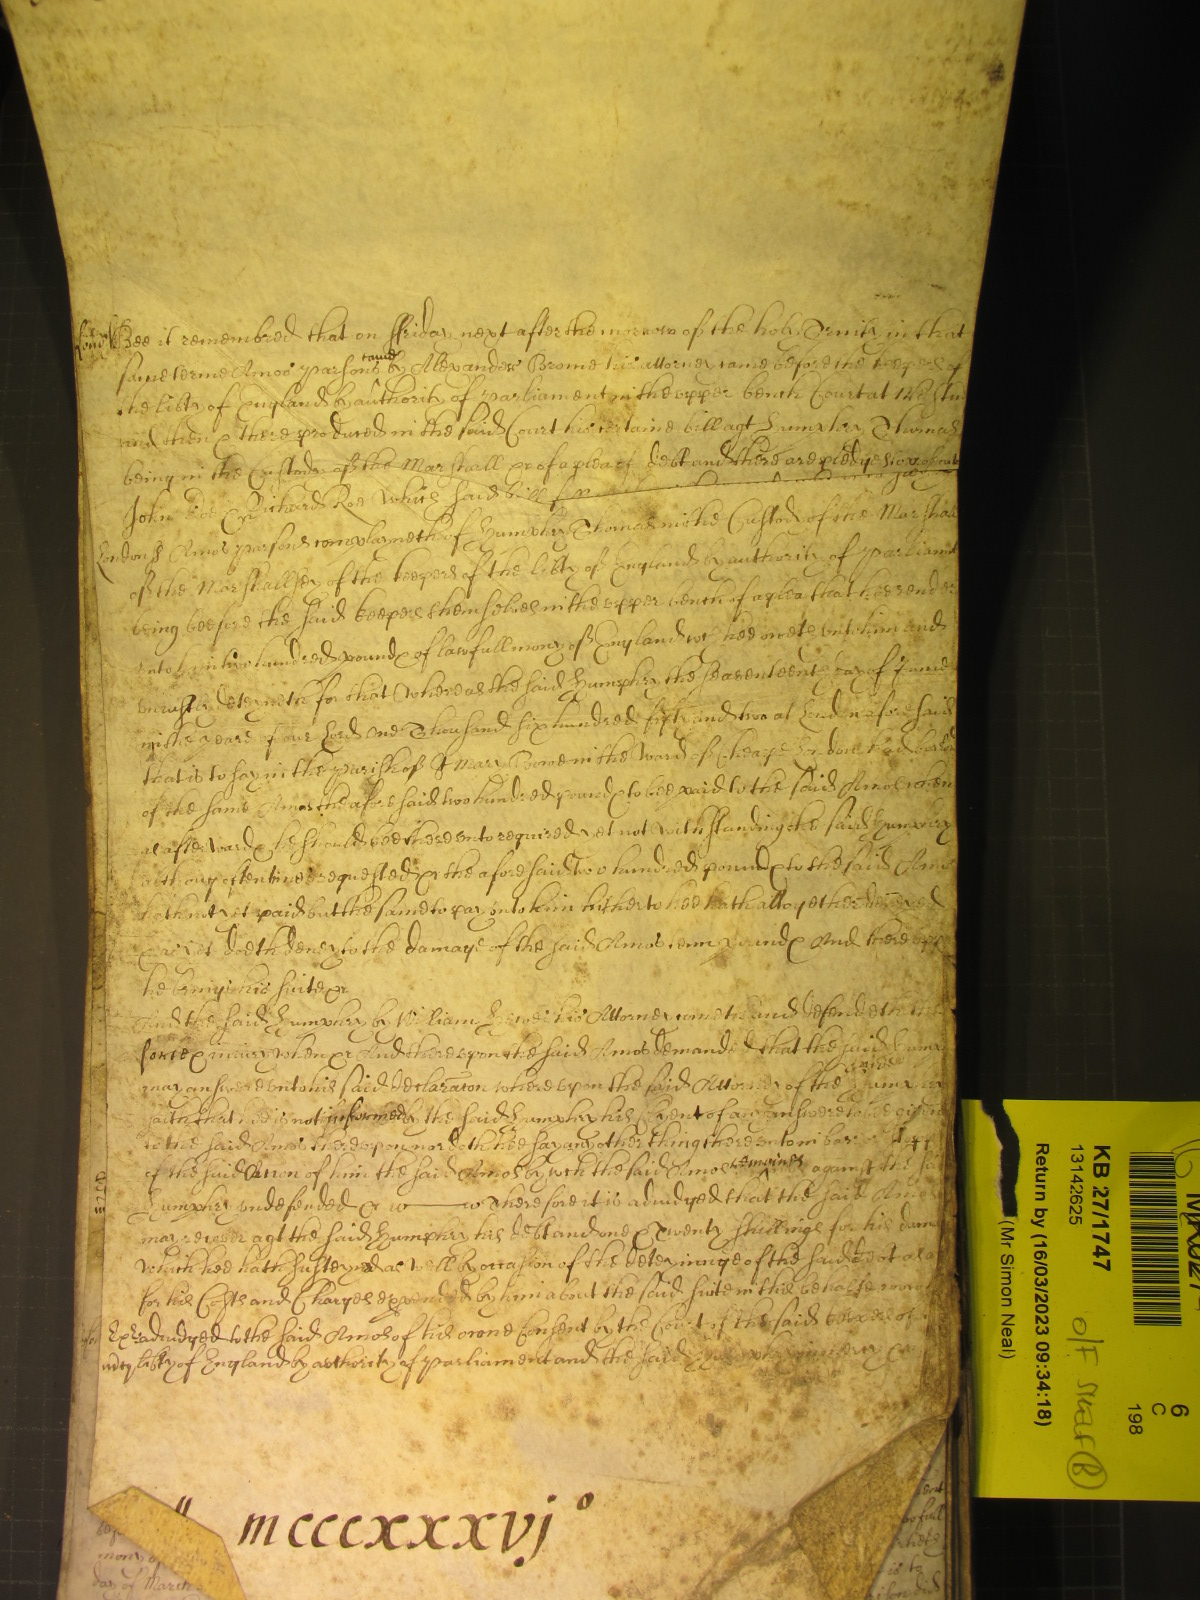 Lond ss Bee it remembred that on ffriday next after the morrow of the holy Trinity in that
same terme Amos Parsons came by Alexander Brome his attorney came before the keepers of
the libty of England by authority of Parliament in the upper bench Court at
and then & there produced in the said Court his certaine bill agt Humphry Thomas
being in the Custody of the Marshall &c of a plea of debt and there are pledges
John Doe & Richard Roe Which said bill
London ss Amos Parsons complayneth of Humphry Thomas in the Custody of the Marshall
of the Marshallsey of the keepers of the libty of England by authority of Parliamt
being beefore the said keepers themselves in the upper bench of a plea that hee render
unto him two hundred pounds of lawfull mony of England wch hee oweth unto him and
uniustly deteyneth for that Whereas the said Humphry the seaventeenth day of June
in the yeare of our Lord one Thousand six hundred fifty and two at London aforesaid
that is to say in the parish of St Mary Bowe in the Ward of Cheape London
of the same Amos the aforesaid two hundred pounds to bee paid to the said Amos when
afterwards he should bee thereunto required yet not withstanding the said Humphry
although oftentimes requested &c the aforesaid two hundred pounds to the said Amos
hath not yet paid but the same to pay unto him hitherto hee hath altogether denyed
and yet doeth deney to the damage of the said Amos tenn pounds And thereupon
he brings his suite &c
And the said Humphry by William his Attorney cometh and defendeth the
force & iniury when &c And thereupon the said Amos demanded that the said Humphry
may answere unto his said declaracon whereupon the said Attorney of the said Humphry
saith that hee is not informed by the said Humphry his Clyent of any answere to bee given
to the said Amos thereupon nor doth hee say any other thing thereunto in barr
of the said Action of him the said Amos by wch the said Amos remaines against the said
Humphry undefended &c Therefore it is adiudged that the said Amos
may recover agt the said Humphry his debt and one & twenty shillings for his damages
which hee hath susteyned as well by occasion of the deteyninge of the said debt as
for his Costs and Charges expended by him about the said suite in this behalfe
adiudged to the said Amos of his owne Consent by the Court of the said keepers of
libty of England by authority of Parliament and the said Humphry in mercy &c
mcccxxxvjo
mony of
day of March
KB 27/1747
13142625
Return by (16/03/2023 09:34:18)
(Mr Simon Neal)
6
C
198